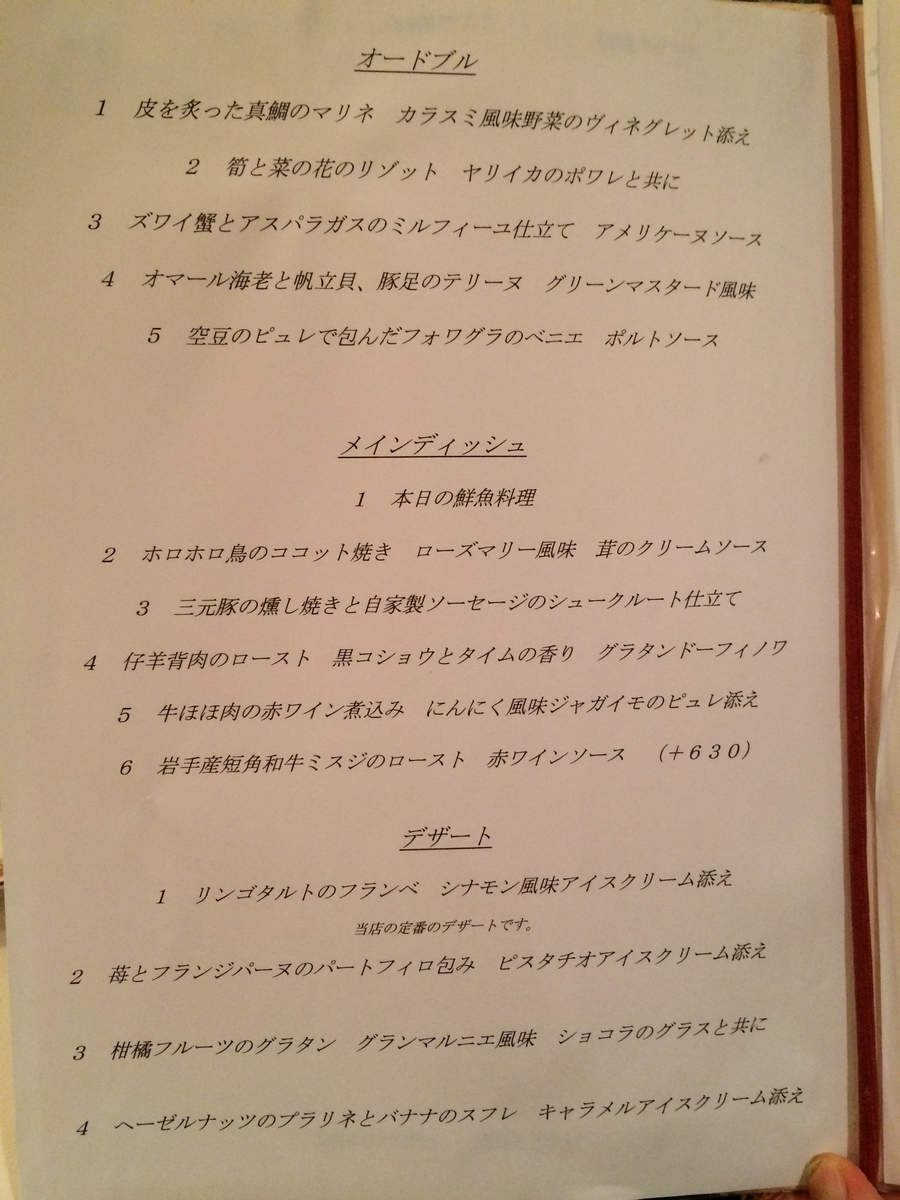 オードブル
1　皮を炙った真鯛のマリネ　カラスミ風味野菜のヴィネグレット添え
2　筍と菜の花のリゾット　ヤリイカのポワレと共に
3　ズワイ蟹とアスパラガスのミルフィーユ仕立て　アメリケーヌソース
4　オマール海老と帆立貝、豚足のテリーヌ　グリーンマスタード風味
5　空豆のピュレで包んだフォワグラのベニエ　ポルトソース
メインディッシュ
1　本日の鮮魚料理
2　ホロホロ鳥のココット焼き　ローズマリー風味　茸のクリームソース
3　三元豚の燻し焼きと自家製ソーセージのシュークルート仕立て
4　仔羊背肉のロースト　黒コショウとタイムの香り　グラタンドーフィノワ
5　牛ほほ肉の赤ワイン煮込み　にんにく風味ジャガイモのピュレ添え
6　岩手産短角和牛ミスジのロースト　赤ワインソース　（＋６３０）
デザート
1　リンゴタルトのフランベ　シナモン風味アイスクリーム添え
当店の定番のデザートです。
2　苺とフランジパーヌのパートフィロ包み　ピスタチオアイスクリーム添え
3　柑橘フルーツのグラタン　グランマルニエ風味　ショコラのグラスと共に
4　ヘーゼルナッツのプラリネとバナナのスフレ　キャラメルアイスクリーム添え